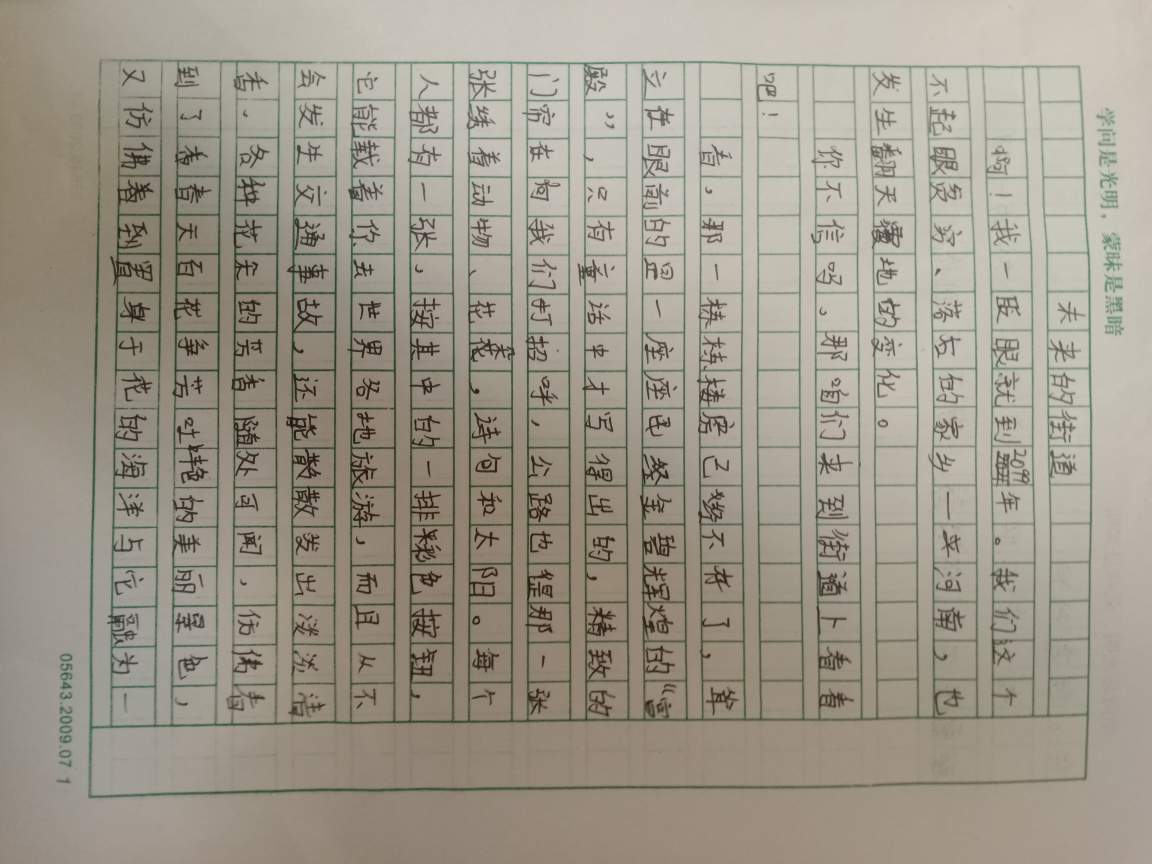 学问是光明，蒙昧是黑暗
未来的街道
啊！我一眨眼就到2099年。我们这个
不起眼贫穷、落后的家乡一平河南，也
发生翻天覆地的变化。
你不信吗、那咱们来到街道上看看
吧！
看，那一栋栋楼房已不存了，耸
立在眼前的是一座座金碧辉煌的“宫
殿”，只有童话中才写得出的，精致的
门帘在向我们打招呼，公路也但那一张
张绣着动物、花卷，诗句和太阳。每个
人都有一张，按其中的一排彩色按钮，
它能载着你去世界各地旅游，而且从不
会发生交通事故，还能散发出淡淡清
香，各种花朵的芳香随处可闻，仿佛看
到了春天百花争芳吐艳的美丽景色，
又仿佛看到置身于花的海洋与它融为一
05643.2009.07 1